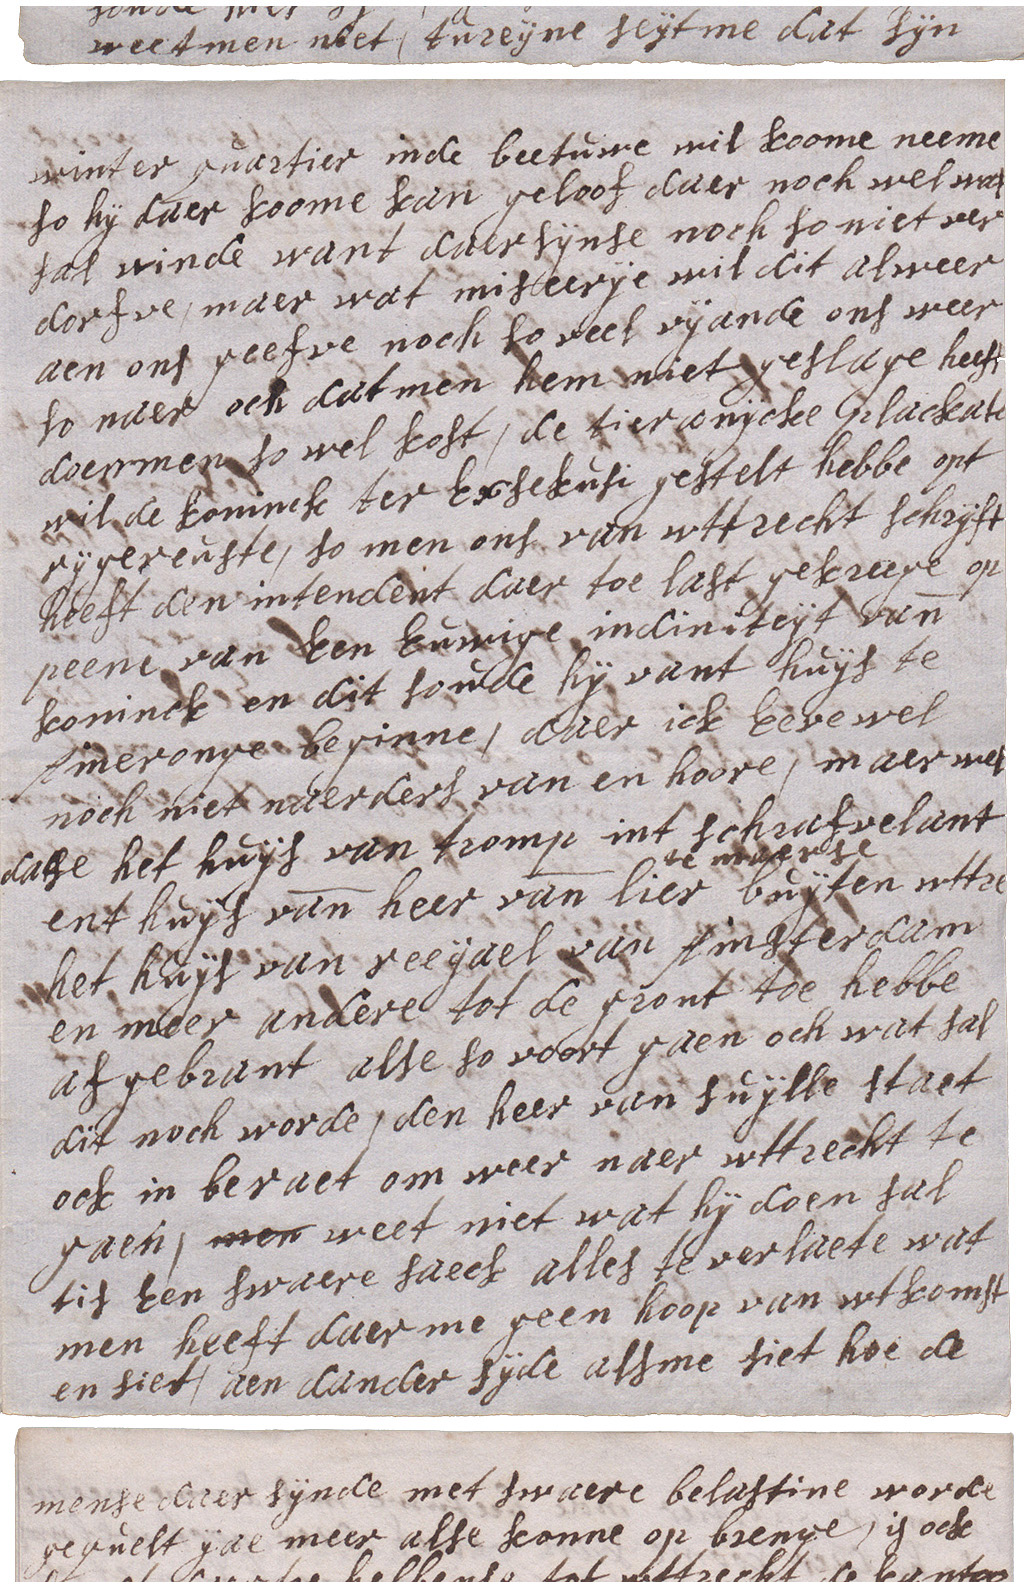 weetmen niet, tureyne seytme dat syn
winter quartier inde beetuwe wil koome neeme
so hy daer koome kan geloof daer noch wel wat
sal vinde want daer synse noch so niet ver
dorfve, maer wat miseerye wil dit alweer
aen ons geefve noch so veel vyande ons weer
so naer och datmen hem niet geslage heeft
doenmen so wel kost, de tieranycke plackate
wil de koninck ter exsekusi gestelt hebbe opt
rygereuste, so men ons van wttrecht schryft
heeft den intendent daer toe last gekreege op
peene van een euwige indiniteyt van
koninck en dit soude hy vant huys te
Ameronge beginne, daer ick eevewel
noch niet naerders van en hoore, maer wel
datse het huys van tromp int schrafvelant
te maerse
ent huys van heer van lier buyten wttre
het huys van reeyael van Amsterdam
en meer andere tot de gront toe hebbe
af gebrant alse so voort gaen och wat sal
dit noch worde, den heer van suylle staet
ock in beraet om weer naer wttrecht te
gaen, men weet niet wat hy doen sal
tis een swaere saeck alles te verlaete wat
men heeft daerme geen hoop van wtkomst
en siet, aen dander syde alsme siet hoe de
mense daer synde met swaere belastine worde
gequelt yae meer alse konne op brenge, is ock
hebbense tot wttrecht de